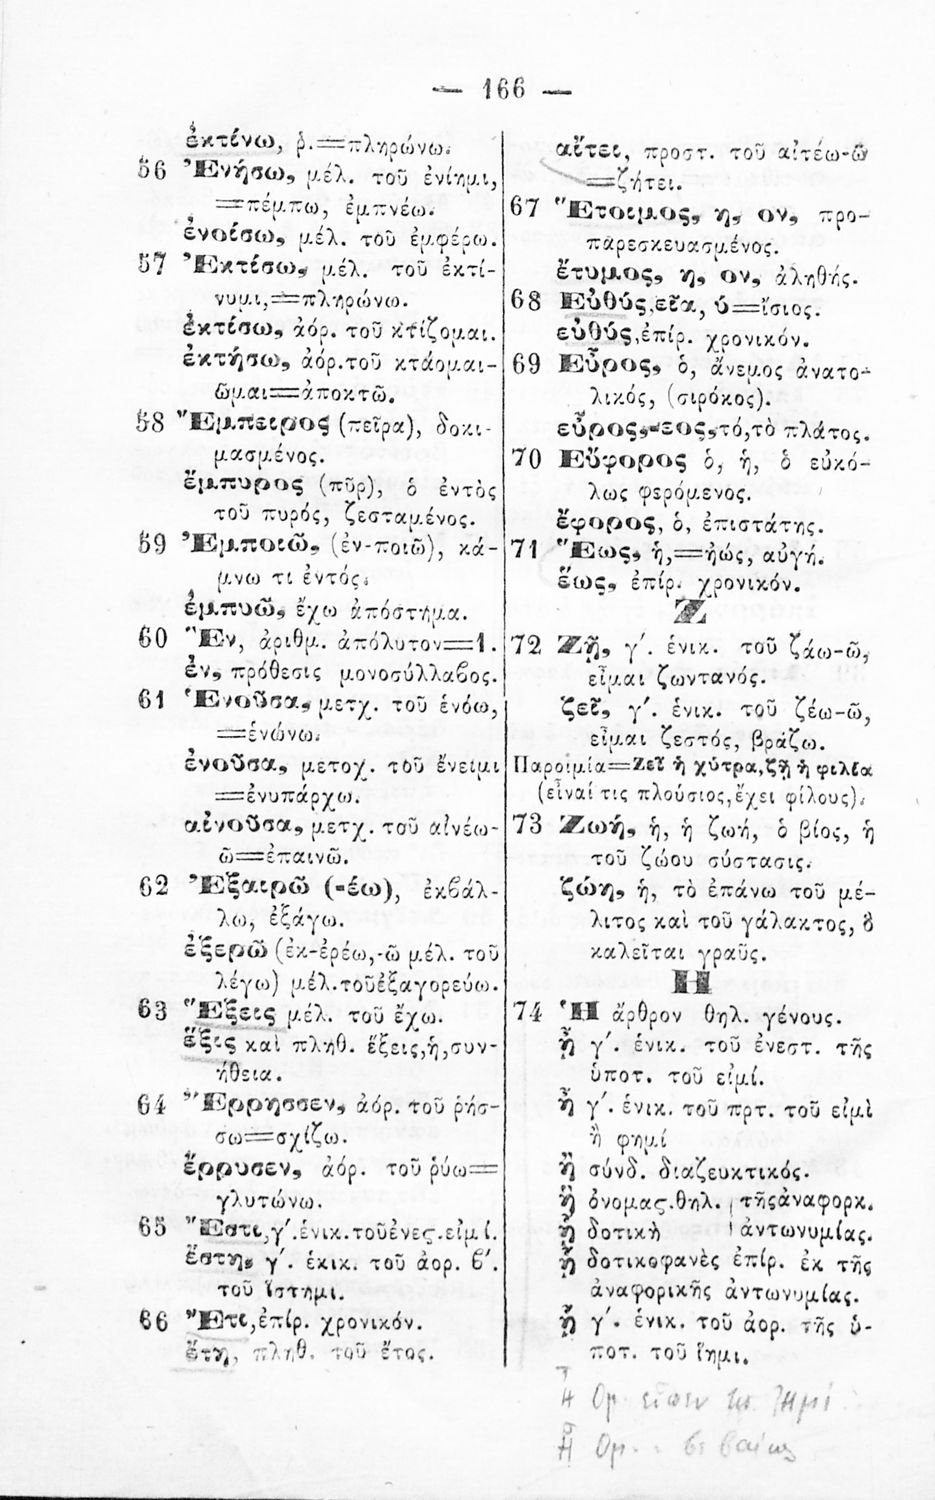 — 166 —
ἐκτένω, ῥ.=πληρώνω.
56 Ἐνήσω, μέλ. τοῦ ἐνίημι,
=πέμπω, ἐμπνέω.
ἐνοίσω, μέλ. τοῦ ἐμφέρω.
57 Ἐκτίσω, μέλ. τοῦ ἐκτί-
νυμι,=πληρώνω.
ἐκτίσω, ἀόρ. τοῦ κτίζομαι.
ἐκτήσω, ἀόρ.τοῦ κτάομαι-
ῶμαι=ἀποκτῶ.
58 Ἔμπειρος (πεῖρα), δοκι-
μασμένος.
ἔμπυρος (πῦρ), ὁ ἐντὸς
τοῦ πυρός, ζεσταμένος.
59 Ἐμποιῶ, (ἐν-ποιῶ), κά-
μνω τι ἐντός.
ἐμπυῶ, ἔχω ἀπόστημα.
60 Ἓν, ἀριθμ. ἀπόλυτον=1.
ἐν, πρόθεσις μονοσύλλαβος.
61 Ἑνοῦσα, μετχ. τοῦ ἑνόω,
=ἑνώνω.
ἐνοῦσα, μετοχ. τοῦ ἔνειμι
=ἐνυπάρχω.
αἰνοῦσα, μετχ. τοῦ αἰνέω-
ῶ=ἐπαινῶ.
62 Ἐξαιρῶ (-έω), ἐκβάλ-
λω, ἐξάγω.
ἐξερῶ (ἐκ-ἐρέω,-ῶ μέλ. τοῦ
λέγω) μέλ.τοῦἐξαγορεύω.
63 Ἕξεις μέλ. τοῦ ἔχω.
ἕξις καὶ πληθ. ἕξεις,ἡ,συν-
ήθεια.
64 Ἔρρησσεν, ἀόρ. τοῦ ῥήσ-
σω=σχίζω.
ἔρρυσεν, ἀόρ. τοῦ ῥύω=
γλυτώνω.
65 Ἔστι,γ΄.ἑνικ.τοῦἐνες.εἰμί.
ἔστη, γ΄. ἑκικ. τοῦ ἀορ. β΄.
τοῦ ἵστημι.
66 Ἔτι,ἐπίρ. χρονικόν.
ἔτη, πληθ. τοῦ ἔτος.
αἴτει, προστ. τοῦ αἰτέω-ῶ
=ζήτει.
67 Ἕτοιμος, η, ον, προ-
παρεσκευασμένος.
ἔτυμος, η, ον, ἀληθής.
68 Εὐθύς,εῖα, ύ=ἴσιος.
εὐθύς,ἐπίρ. χρονικόν.
69 Εὖρος, ὁ, ἄνεμος ἀνατο-
λικός, (σιρόκος).
εὖρος,-εος,τό,τὸ πλάτος.
70 Εὔφορος ὁ, ἡ, ὁ εὐκό-
λως φερόμενος.
ἔφορος, ὁ, ἐπιστάτης.
71 Ἕως, ἡ,=ἠώς, αὐγή.
ἕως, ἐπίρ. χρονικόν.
Ζ
72 Ζῇ, γ΄. ἑνικ. τοῦ ζάω-ῶ,
εἶμαι ζωντανός.
ζεῖ, γ΄. ἑνικ. τοῦ ζέω-ῶ,
εἶμαι ζεστός, βράζω.
Παροιμία=Ζεῖ ἡ χύτρα,ζῇ ἡ φιλία
(εἶναί τις πλούσιος,ἔχει φίλους).
73 Ζωή, ἡ, ἡ ζωή, ὁ βίος, ἡ
τοῦ ζώου σύστασις.
ζώη, ἡ, τὸ ἐπάνω τοῦ μέ-
λιτος καὶ τοῦ γάλακτος, ὃ
καλεῖται γραῦς.
Η
74 Ἡ ἄρθρον θηλ. γένους.
ᾖ γ΄. ἑνικ. τοῦ ἐνεστ. τῆς
ὑποτ. τοῦ εἰμί.
ἦ γ΄. ἑνικ. τοῦ πρτ. τοῦ εἰμὶ
ἢ φημί
ἢ σύνδ. διαζευκτικός.
ἣ ὀνομας.θηλ. τῆςἀναφορκ.
ᾗ δοτικὴ ἀντωνυμίας.
ᾗ δοτικοφανὲς ἐπίρ. ἐκ τῆς
ἀναφορικῆς ἀντωνυμίας.
ᾗ γ΄. ἑνικ. τοῦ ἀορ. τῆς ὑ-
ποτ. τοῦ ἵημι.